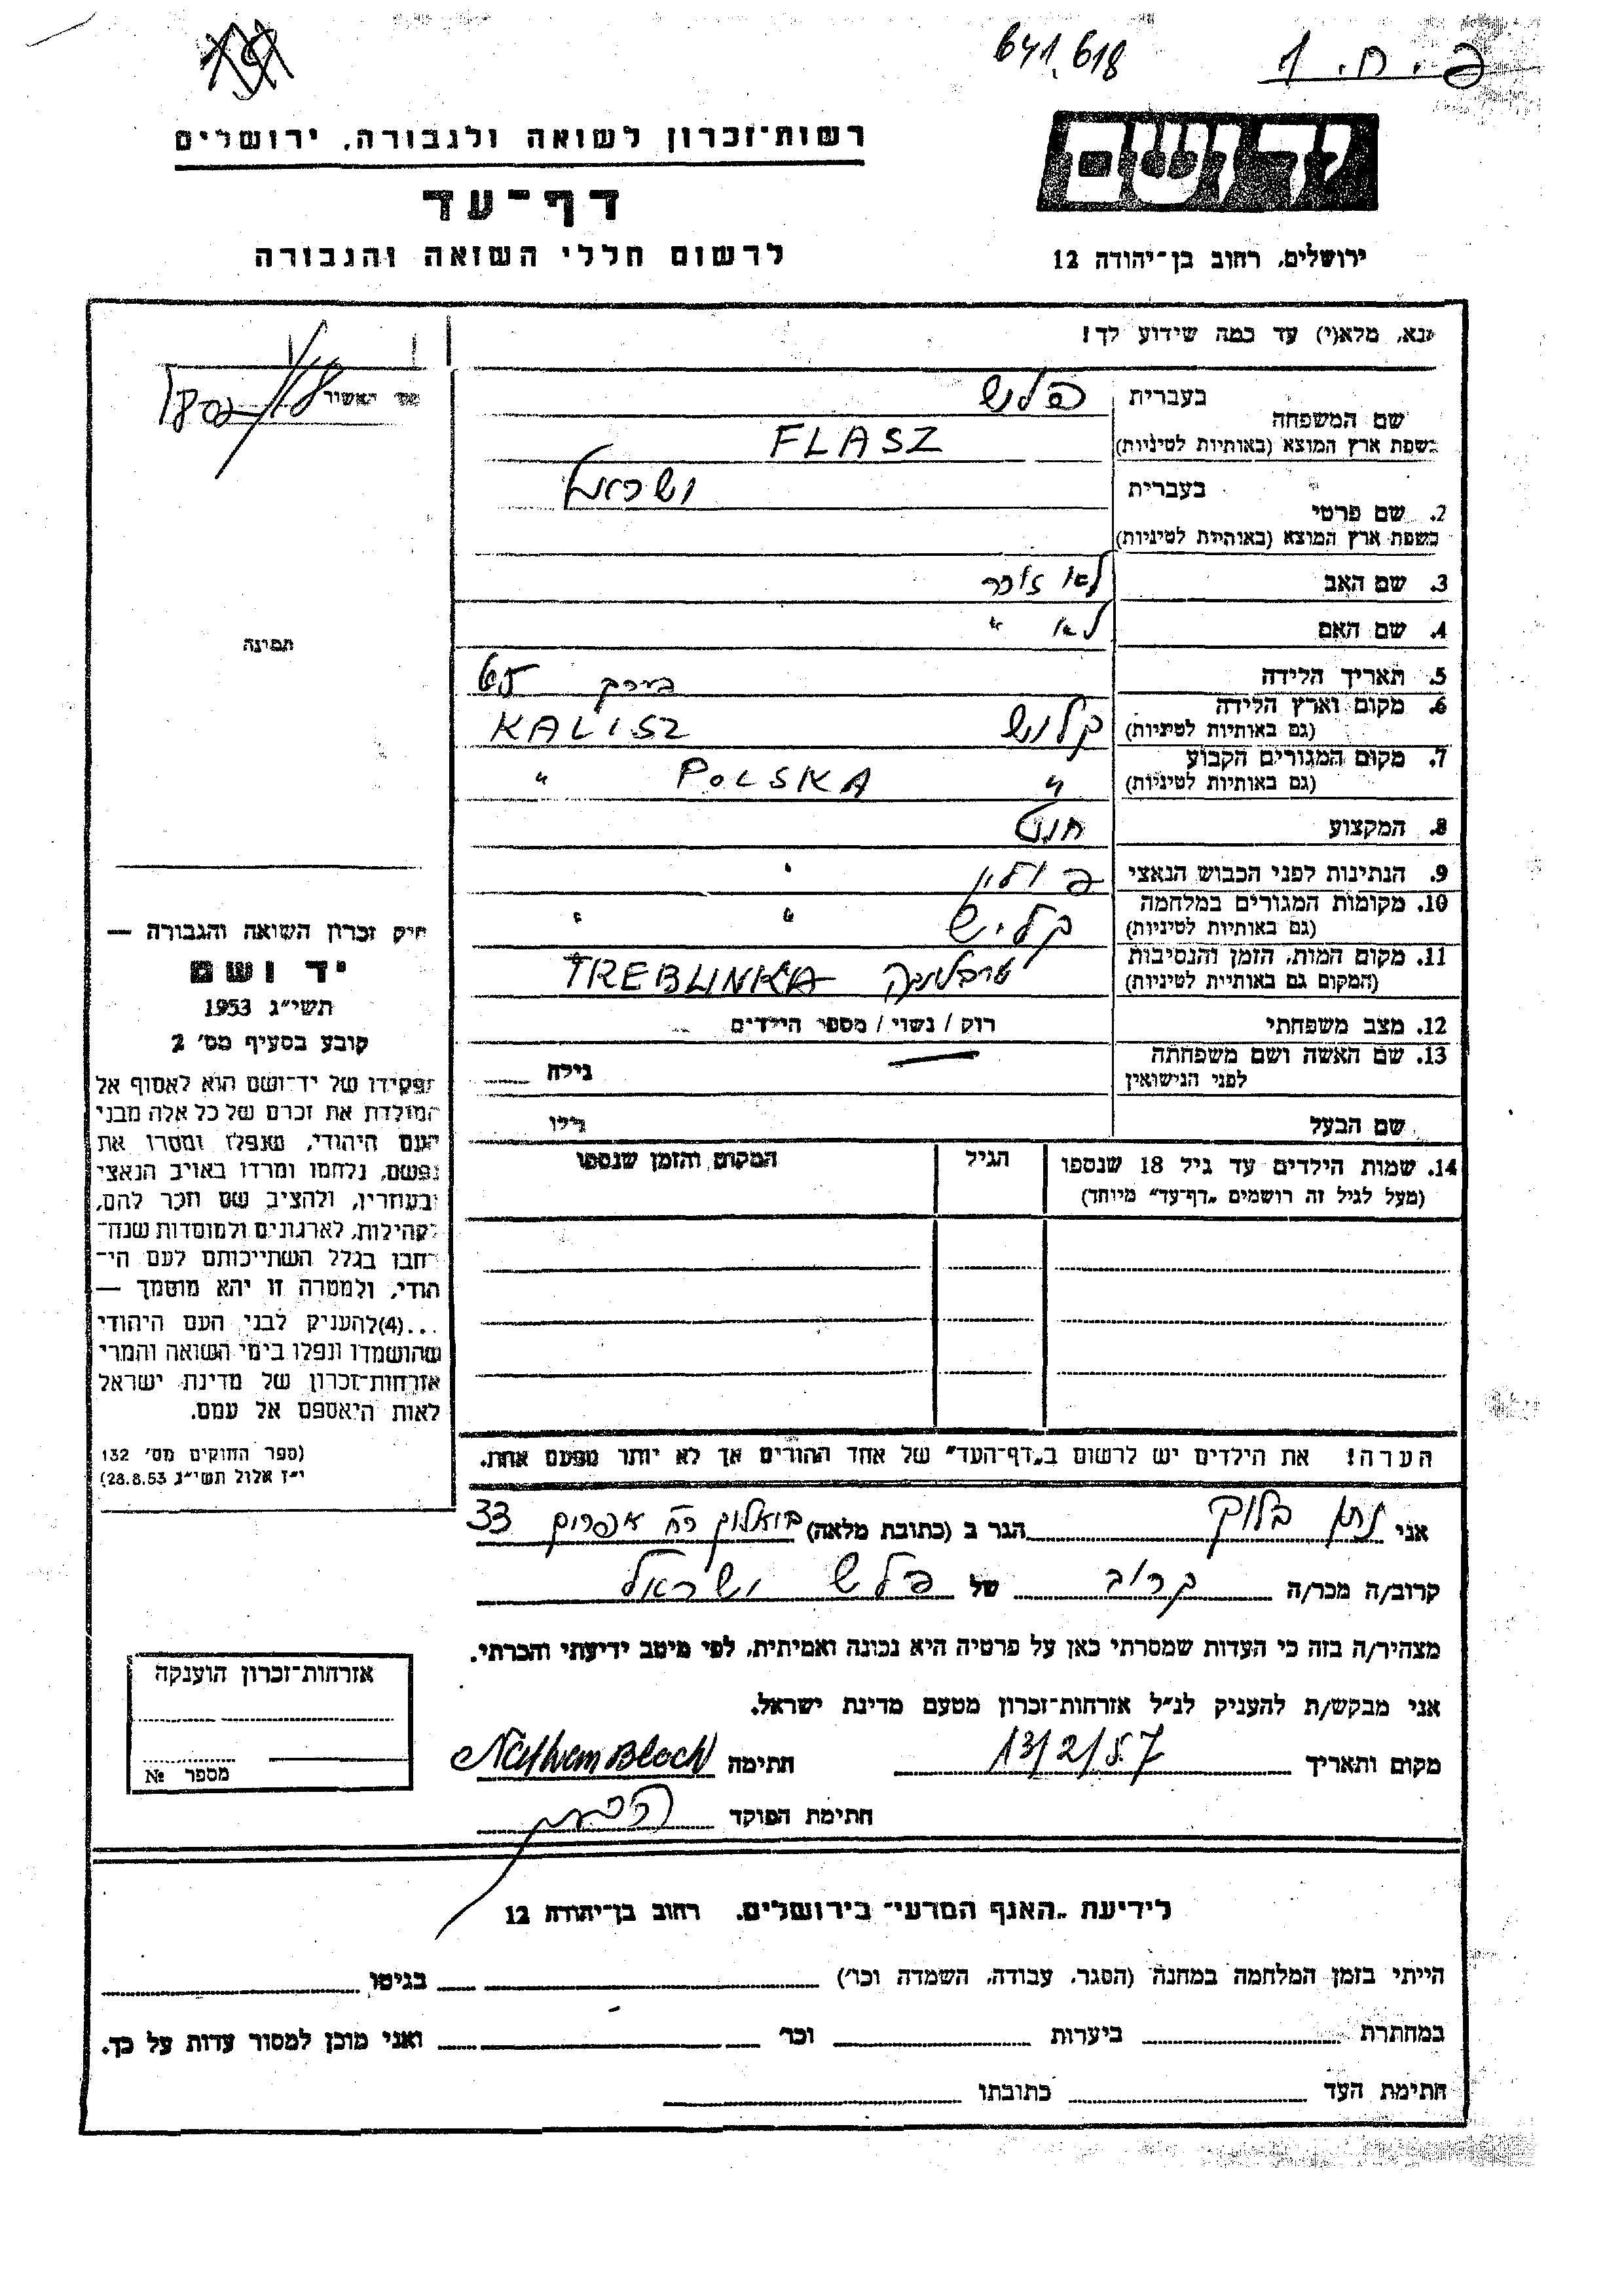 641,618
פ. ח. 1
יד ושם
רשות־זכרון לשואה ולגבורה, ירושלים
דף־עד
לרשום חללי השואה והגבורה
ירושלים, רחוב בן־יהודה 12
נא, מלא(י) עד כמה שידוע לך!
שם המשפחה
בעברית פלש
בשפת ארץ המוצא (באותיות לטיניות) FLASZ
2. שם פרטי
בעברית ישראל
בשפת ארץ המוצא (באותיות לטיניות)
3. שם האב לא זוכר
4. שם האם לא "
5. תאריך הלידה בערך 65
6. מקום וארץ הלידה (גם באותיות לטיניות) קליש KALISZ
7. מקום המגורים הקבוע (גם באותיות לטיניות) " POLSKA "
8. המקצוע
9. הנתינות לפני הכבוש הנאצי פולין
10. מקומות המגורים במלחמה (גם באותיות לטיניות) קליש " "
11. מקום המות, הזמן והנסיבות (המקום גם באותיות לטיניות) טרבלינקה TREBLINKA
12. מצב משפחתי רוק / נשוי / מספר הילדים
13. שם האשה ושם משפחתה לפני הנישואין גילה
שם הבעל גילו
14. שמות הילדים עד גיל 18 שנספו (מעל לגיל זה רושמים „דף־עד" מיוחד)
הגיל
המקום והזמן שנספו
הערה! את הילדים יש לרשום ב„דף־העד" של אחד ההורים אך לא יותר מפעם אחת.
תמונה
חוק זכרון השואה והגבורה —
יד ושם
תשי״ג 1953
קובע בסעיף מס׳ 2
תפקידו של יד־ושם הוא לאסוף אל
המולדת את זכרם של כל אלה מבני
העם היהודי, שנפלו ומסרו את
נפשם, נלחמו ומרדו באויב הנאצי
ובעוזריו, ולהציב שם וזכר להם,
לקהילות, לארגונים ולמוסדות שנח־
רבו בגלל השתייכותם לעם הי־
הודי, ולמטרה זו יהא מוסמך —
...(4) להעניק לבני העם היהודי
שהושמדו ונפלו בימי השואה והמרי
אזרחות־זכרון של מדינת ישראל
לאות היאספם אל עמם.
(ספר החוקים מס׳ 132
י״ז אלול תשי״ג 28.8.53)
אני נתן בלוך הגר ב (כתובת מלאה) רח אפרים 33
קרוב/ה מכר/ה קרוב של פלש ישראל
מצהיר/ה בזה כי העדות שמסרתי כאן על פרטיה היא נכונה ואמיתית, לפי מיטב ידיעתי והכרתי.
אני מבקש/ת להעניק לנ״ל אזרחות־זכרון מטעם מדינת ישראל.
מקום ותאריך 13/2/57 חתימה Nathan Bloch
חתימת הפוקד
אזרחות־זכרון הוענקה
מספר №
לידיעת „האגף המדעי" בירושלים, רחוב בן־יהודה 12
הייתי בזמן המלחמה במחנה (הסגר, עבודה, השמדה וכו׳) בגיטו
במחתרת ביערות וכו׳ ואני מוכן למסור עדות על כך.
חתימת העד כתובתו